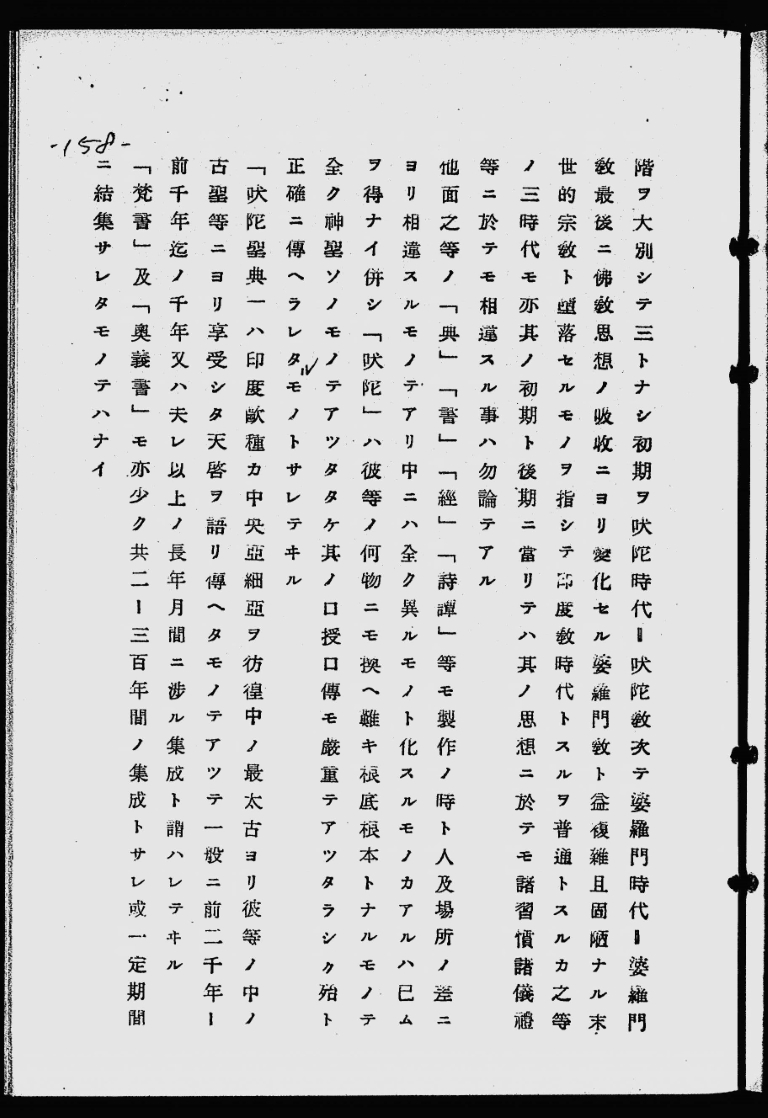 -158-
階ヲ大別シテ三トナシ初期ヲ吠陀時代ー吠陀敎次テ婆羅門時代ー婆羅門
敎最後ニ佛敎思想ノ吸收ニヨリ變化セル婆羅門敎ト益複雜且固陋ナル末
世的宗敎ト墮落セルモノヲ指シテ印度敎時代トスルヲ普通トスルカ之等
ノ三時代モ亦其ノ初期ト後期ニ當リテハ其ノ思想ニ於テモ諸習慣諸儀禮
等ニ於テモ相違スル事ハ勿論テアル
他面之等ノ「典」「書」「經」「詩譚」等モ製作ノ時ト人及場所ノ差ニ
ヨリ相違スルモノテアリ中ニハ全ク異ルモノト化スルモノカアルハ已ム
ヲ得ナイ併シ「吠陀」ハ彼等ノ何物ニモ換ヘ難キ根底根本トナルモノテ
全ク神聖ソノモノテアツタタケ其ノ口授口傳モ嚴重テアツタラシク殆ト
正確ニ傳ヘラレタモノトサレテヰル
「吠陀聖典一ハ印度歐種カ中央亞細亞ヲ彷徨中ノ最太古ヨリ彼等ノ中ノ
古聖等ニヨリ享受シタ天啓ヲ語リ傳ヘタモノテアツテ一般ニ前二千年ー
前千年迄ノ千年又ハ夫レ以上ノ長年月間ニ涉ル集成ト謂ハレテヰル
「梵書」及「奧義書」モ亦少ク共二ー三百年間ノ集成トサレ或一定期間
ニ結集サレタモノテハナイ